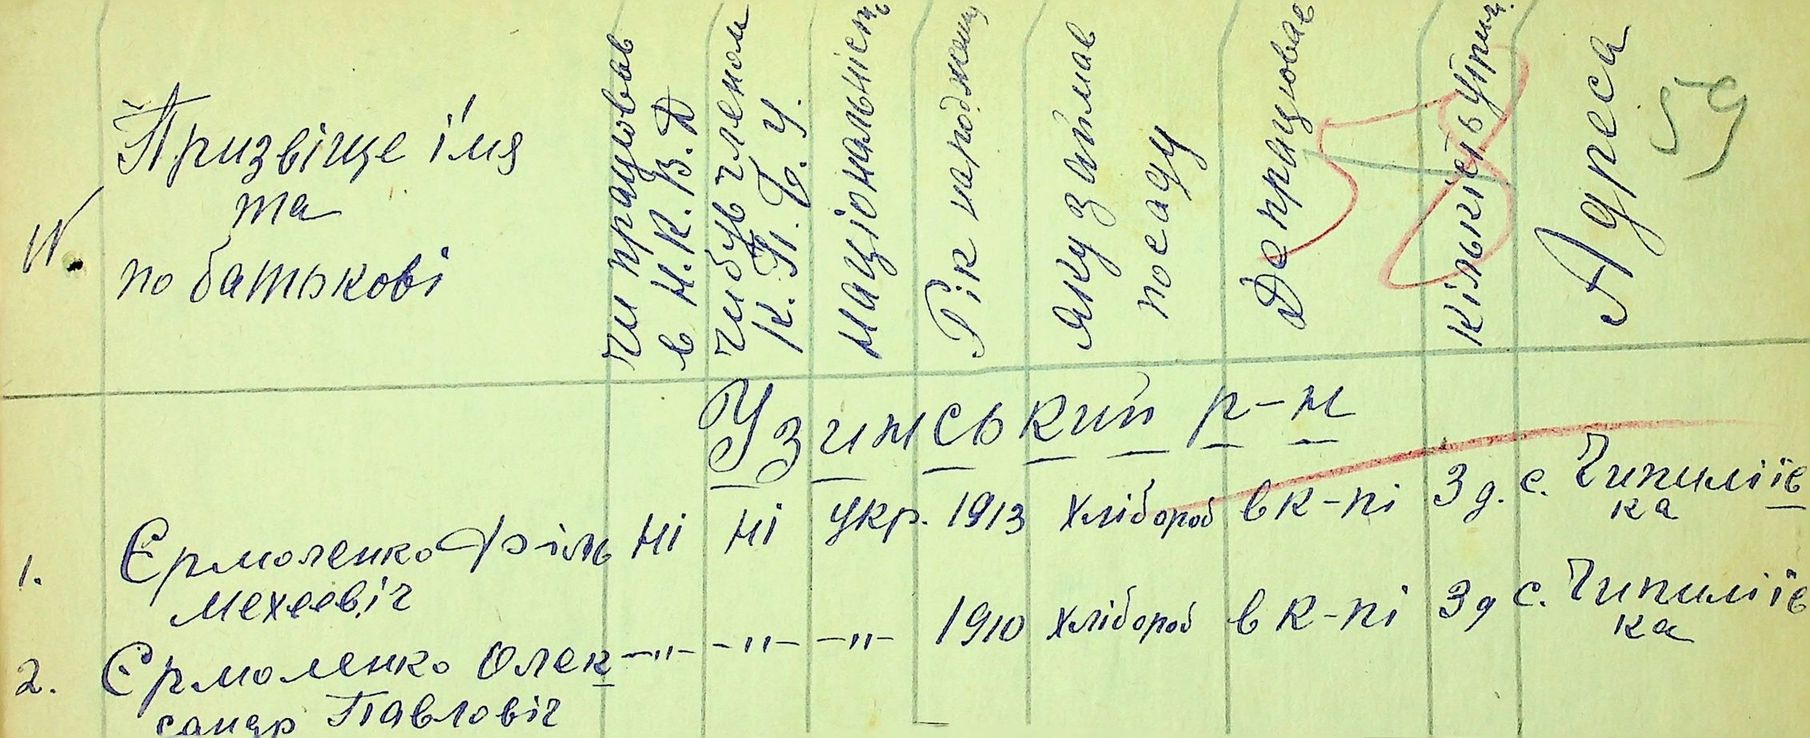 N.
Призвіще і'мя
та
по батькові
Чи працював
в Н.К.В.Д
Чи був членом
К.П.б.У.
Національність
Рік народження
Яку займав
посаду
Де працював
Кількість утрим.
Адреса
59
Узинський р-н
1. Єрмоленко Філь ні ні укр. 1913 хлібороб в к-пі 3 д. с. Чипиліїв
мехеевіч ка
2. Єрмоленко Олек -"- -"- -"- 1910 хлібороб в к-пі 3 д с. Чипиліїв
сандр Павловіч ка